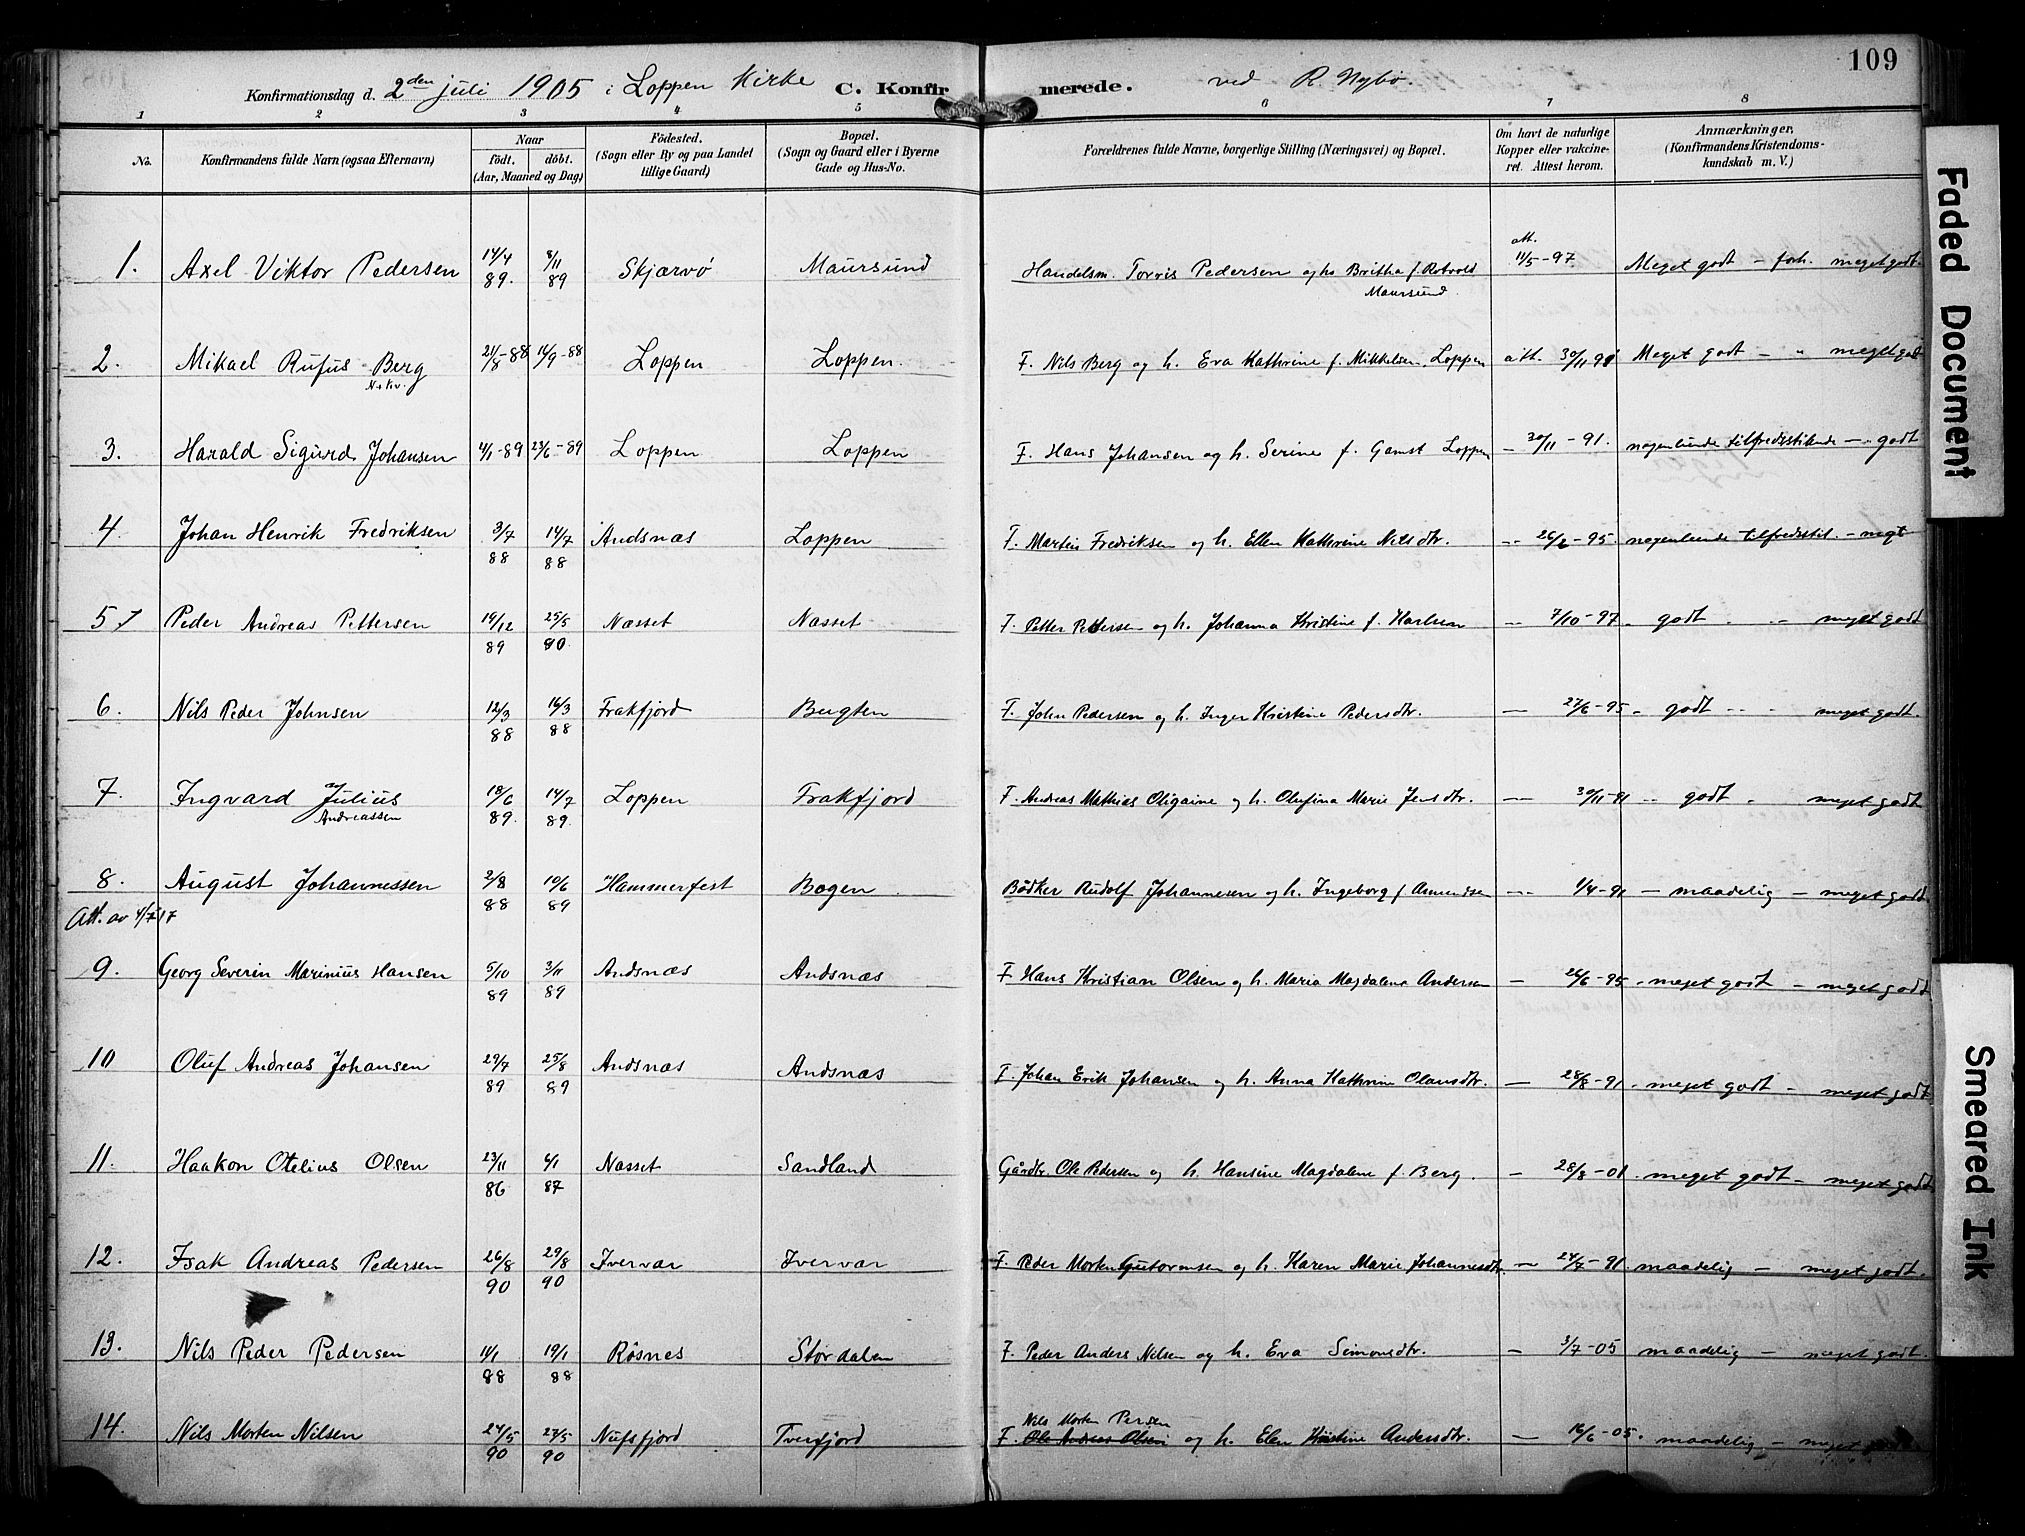 109
Konfirmationsdag d. 2den juli 1905 i Loppen Kirke C. Konfirmerede. ved R Nybø.
1 2 3 4 5 6 7 8
No. Konfirmandens fulde Navn (ogsaa Efternavn) Naar födt. döbt. (Aar, Maaned og Dag) Födested. (Sogn eller By og paa Landet tillige Gaard) Bopæl. (Sogn og Gaard eller i Byerne Gade og Hus-No. Forældrenes fulde Navne, borgerlige Stilling (Næringsvei) og Bopæl. Om havt de naturlige Kopper eller vakcineret. Attest herom. Anmærkninger. (Konfirmandens Kristendomskundskab m. V.)
1. Axel Viktor Pedersen 14/4 89. 8/11 89 Skjærvø Maursund Handelsm. Torris Pedersen og h. Britha f. Rotvold Maursund att. 11/5-97. Meget godt - forh. meget godt.
2. Mikael Rufus Berg 21/8-88 16/9-88 Loppen Loppen. F. Nils Berg og h. Eva Kathrine f. Mikkelsen. Loppen att. 30/11 91 Meget godt - " meget godt
3. Harald Sigurd Johansen 4/1-89 23/6-89 Loppen Loppen F. Hans Johansen og h. Serine f. Gamst Loppen - 30/11-91. nogenlunde tilfredsstilende - " godt
4. Johan Henrik Fredriksen 3/7 88 14/7 88 Andsnæs Loppen F. Martin Fredriksen og h. Ellen Kathrine Nilsdtr. - 26/2-95 nogenlunde tilfredsstil. - megt
5 Peder Andreas Pettersen 19/12 89 25/5 90 Næsset Næsset F. Petter Pettersen og h. Johanna Kristine f. Karlsen - 7/10-97 - godt - meget godt
6. Nils Peder Johnsen 12/3 88 16/3 88 Frakfjord Bugten F. John Pedersen og h. Inger Kristine Pedersdtr. - 27/6-95 - godt - meget godt.
7. Ingvard Julius Andreassen 18/6 89. 14/7 89. Loppen Frakfjord F. Andreas Mathias Oligaine og h. Olufina Marie Jensdtr. - 30/11-91 - godt - meget godt
8. August Johannessen 2/8 88 10/6 89 Hammerfest Bogen Bödker Rudolf Johannesen og h. Ingeborg f. Asmundsen - 1/4-91 - maadelig - meget godt
Att. av 4/7 17
9. Georg Severin Marinius Hansen 5/10 89 3/11 89 Andsnæs Andsnæs F Hans Kristian Olsen og h. Maria Magdalena Andersen - 26/6-95 - meget godt - meget godt
10 Oluf Andreas Johansen 29/7 89 25/8 89 Andsnæs Andsnæs F. Johan Erik Johansen og h. Anna Kathrine Olausdtr. - 28/8-91 - meget godt - meget godt
11. Haakon Otelius Olsen 23/11 86 4/1 87 Næsset Sandland Gårdbr. Ole Pedersen og h. Hansine Magdalene f. Berg. - 28/8-01. meget godt - meget godt
12. Isak Andreas Pedersen 26/8 90 29/8 90 Ivervær Ivervær F. Peder Morten Gustavensen og h. Karen Marie Johannesdtr. - 24/7-91 maadelig - meget godt.
13. Nils Peder Pedersen 11/1 88 19/1 88 Røsnes Størdalen F. Peder Anders Nilsen og h. Eva Simonsdtr. - 3/7-05 maadelig - meget godt.
14. Nils Morten Nilsen 24/5 90 27/5 90 Nufsfjord Tverfjord F. Ole Andreas Olsen Nils Morten Persen og h. Elen Kristine Andersdtr. - 16/6-05. maadelig - meget
N. Kv.
Faded Document
Smeared Ink